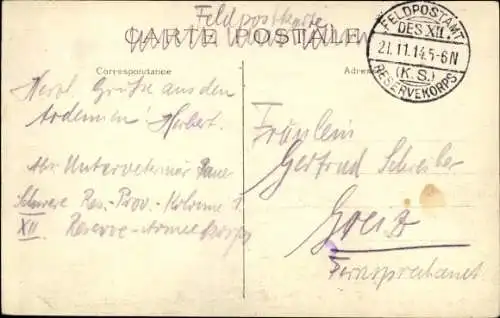 Feldpostkarte
CARTE POSTALE
Correspondance
Adresse
FELDPOSTAMT
DES XII.
21.11.14.5-6N
(K.S.)
RESERVEKORPS
Herzl. Grüße aus den
Ardennen Herbert.
Unterveterinär
Schwere Res.-Prov.-Kolonne 1
XII. Reserve-Armeekorps
Fräulein
Gertrud Schreiber
Greiz
Fernsprechamt